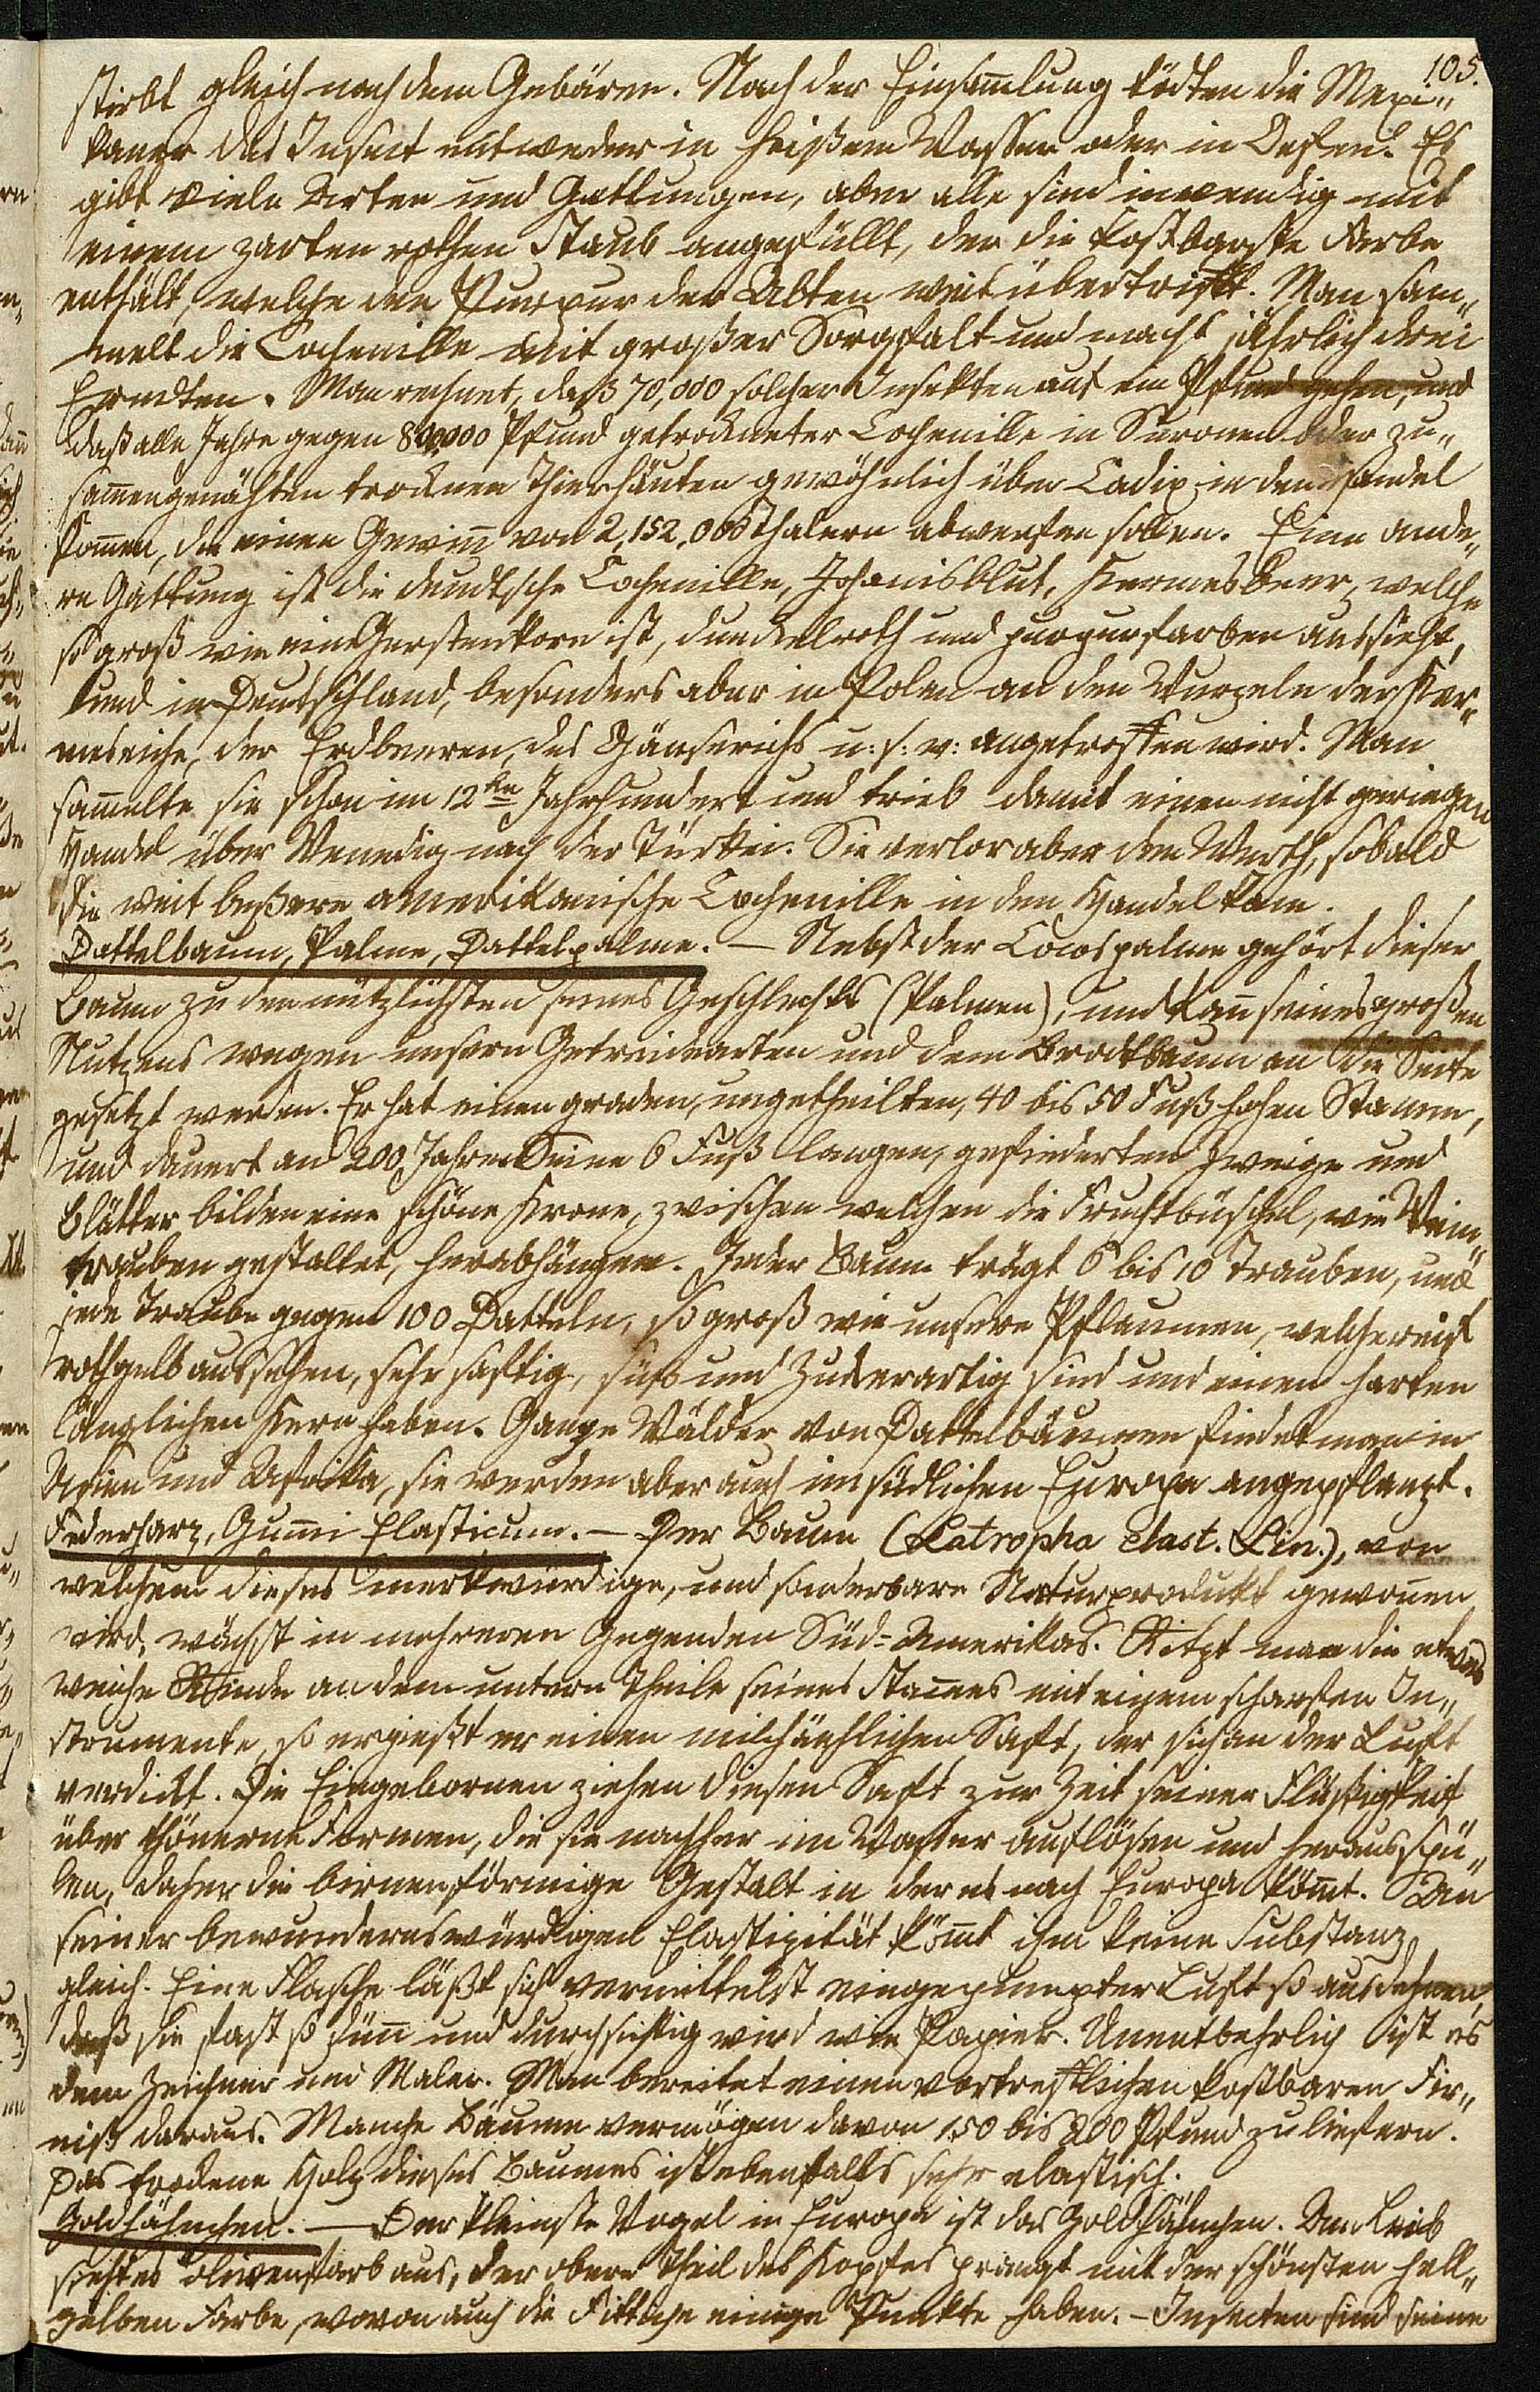 105.
stirbt gleich nach dem Gebären. Nach der Einsam̅lung tödten die Mexi„
kaner das Insect entweder in heißem Wasser oder in Oefen. Es
gibt viele Arten und Gattungen, aber alle sind inwendig mit
einem zarten rothen Staub angefüllt, der die kostbarste Farbe
enthält, welche den Purpur der Alten weit übertrifft. Man sam„
melt die Cochenille mit großer Sorgfalt und macht jährlich drei
Erndten. Man rechnet, daß 70,000 solcher Insekten auf ein Pfund gehen, und
daß alle Jahre gegen 800,000 Pfund getrockneter Cochenille in Suronen oder zu„
sam̅engenähten trocknen Thierhäuten gewöhnlich über Cadix in den Handel
kom̅en, die einen Gewin̅ von 2,152,000 Thalern abwerfen sollen. Eine ande„
re Gattung ist die deudtsche Cochenille, Johanisblut, Kermesbeer, welche
so groß wie ein Gerstenkorn ist, dunkelroth und purpurfarben aussieht,
und in Deutschland, besonders aber in Polen an den Wurzeln der Ker„
meseiche, der Erdbeeren, des Gänserichs u: s: w: angetroffen wird. Man
sam̅elte sie schon im 12ten Jahrhundert und trieb damit einen nicht geringen
Handel über Venedig nach der Türkei. Sie verlor aber den Werth, sobald
die weit beßere amerikanische Cochenille in den Handel kam.
Dattelbaum, Palme, Dattelpalme. — Nebst der Cocospalme gehört dieser
Baum zu den nützlichsten seines Geschlechts (Palmen), und kan̅ seines großen
Nutzens wegen unsern Getreidearten und dem Brodtbaum an die Seite
gesetzt werden. Er hat einen graden, ungetheilten, 40 bis 50 Fuß hohen Stamm,
und dauert an 200 Jahre. Seine 6 Fuß langen, gefiederten Zweige und
Blätter bilden eine schöne Krone, zwischen welchen die Fruchtbüschel, wie Wein„
trauben gestaltet, herabhängen. Jeder Baum trägt 6 bis 10 Trauben, und
jede Traube gegen 100 Datteln, so groß wie unsere Pflaumen, welche reif
rothgelb aussehen, sehr saftig, süß und zuckerartig sind und einen harten
länglichen Kern haben. Ganze Wälder von Dattelbäumen findet man in
Asien und Afrika, sie werden aber auch im südlichen Europa angepflanzt.
Federharz, Gum̅i Elasticum. — Der Baum (Latropha elast. Lin.), von
welchem dieses merkwürdige, und sonderbare Naturprodukt gewon̅en
wird, wächst in mehreren Gegenden Süd-Amerikas. Ritzt man die etwas
weiche Rinde an dem untern Theile seines Stam̅es mit einem scharfen In„
strumente, so ergießt er einen milchähnlichen Saft, der sich an der Luft
verdickt. Die Eingebornen ziehen diesen Saft zur Zeit seiner Flüßigkeit
über thönerne Formen, die sie nachher im Wasser auflösen und herausspü„
len, daher die birnenförmige Gestalt in der es nach Europa köm̅t. An
seiner bewundernswürdigen Elastizität köm̅t ihm keine Substanz
gleich. Eine Flasche läßt sich vermittelst eingepumpter Luft so ausdehnen,
daß sie fast so dün̅ und durchsichtig wird wie Papier. Unentbehrlich ist es
dem Zeichner und Maler. Man bereitet einen vortrefflichen kostbaren Fir„
niß daraus. Manche Bäume vermögen davon 150 bis 200 Pfund zu liefern.
Das trockene Holz dieses Baumes ist ebenfalls sehr elastisch.
Goldhähnchen. — Der kleinste Vogel in Europa ist das Goldhähnchen. Am Leib
sieht es olivenfarb aus, der obere Theil des Kopfes prangt mit der schönsten hell„
gelben Farbe, wovon auch die Fittiche einige Punkte haben. — Insecten sind seine